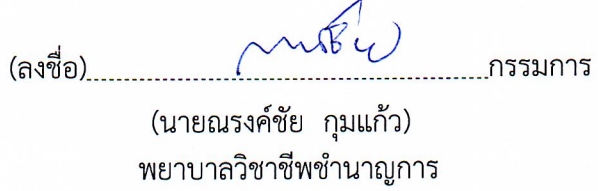 (ลงชื่อ)........................................................กรรมการ
(นายณรงค์ชัย กุมแก้ว)
พยาบาลวิชาชีพชำนาญการ